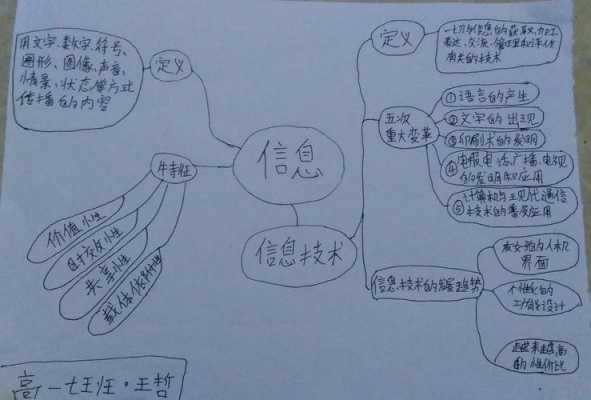 用文字、数字、符号、
图形、图像、声音、
情景、状态等方式
传播的内容
定义
特性
价值性
时效性
共享性
载体依附性
信息
信息技术
定义
一切与信息的获取、加工
表达、交流、管理和评价
有关的技术
五次
重大变革
①语言的产生
②文字的出现
③印刷术的发明
④电报电话广播、电视
的发明和应用
⑤计算机与现代通信
技术的普及应用
信息技术的发展趋势
友好的人机
界面
个性化的
功能设计
越来越高
的性价比
高一七班·王哲